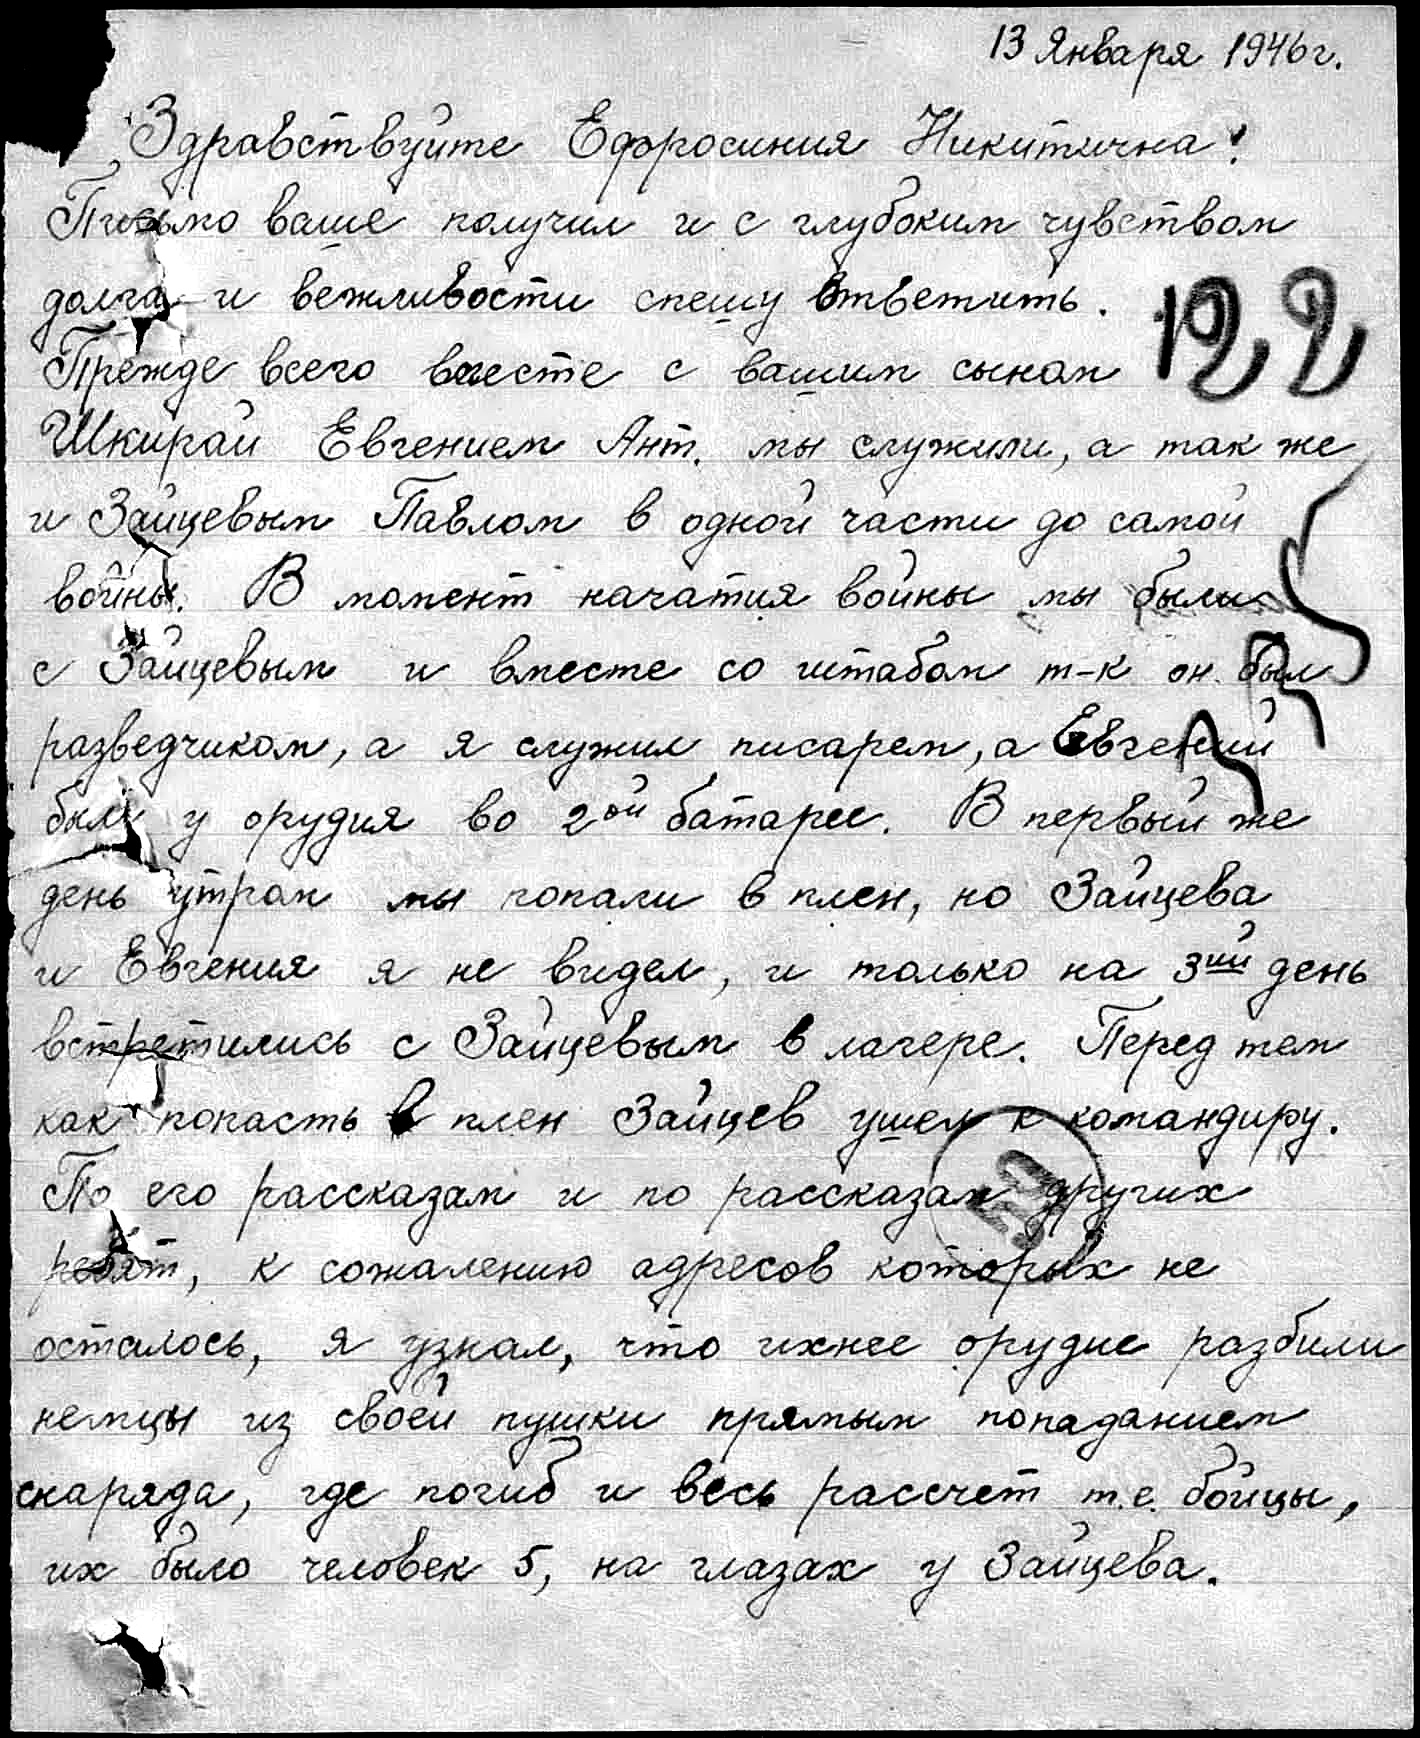 13 Января 1946г.
Здравствуйте Ефросиния Никитична!
Письмо ваше получил и с глубоким чувством
долга и вежливости спешу ответить.
122
Прежде всего вместе с вашим сыном
Шкирай Евгением Ант. мы служили, а так же
и Зайцевым Павлом в одной части до самой
войны. В момент начатия войны мы были
с Зайцевым и вместе со штабом т-к он был
разведчиком, а я служил писарем, а Евгений
был у орудия во 2ой батарее. В первый же
день утром мы попали в плен, но Зайцева
и Евгения я не видел, и только на 3ий день
встретились с Зайцевым в лагере. Перед тем
как попасть в плен Зайцев ушел к командиру.
По его рассказам и по рассказам других
ребят, к сожалению адресов которых не
осталось, я узнал, что ихнее орудие разбили
немцы из своей пушки прямым попаданием
снаряда, где погиб и весь рассчет т.е. бойцы,
их было человек 5, на глазах у Зайцева.